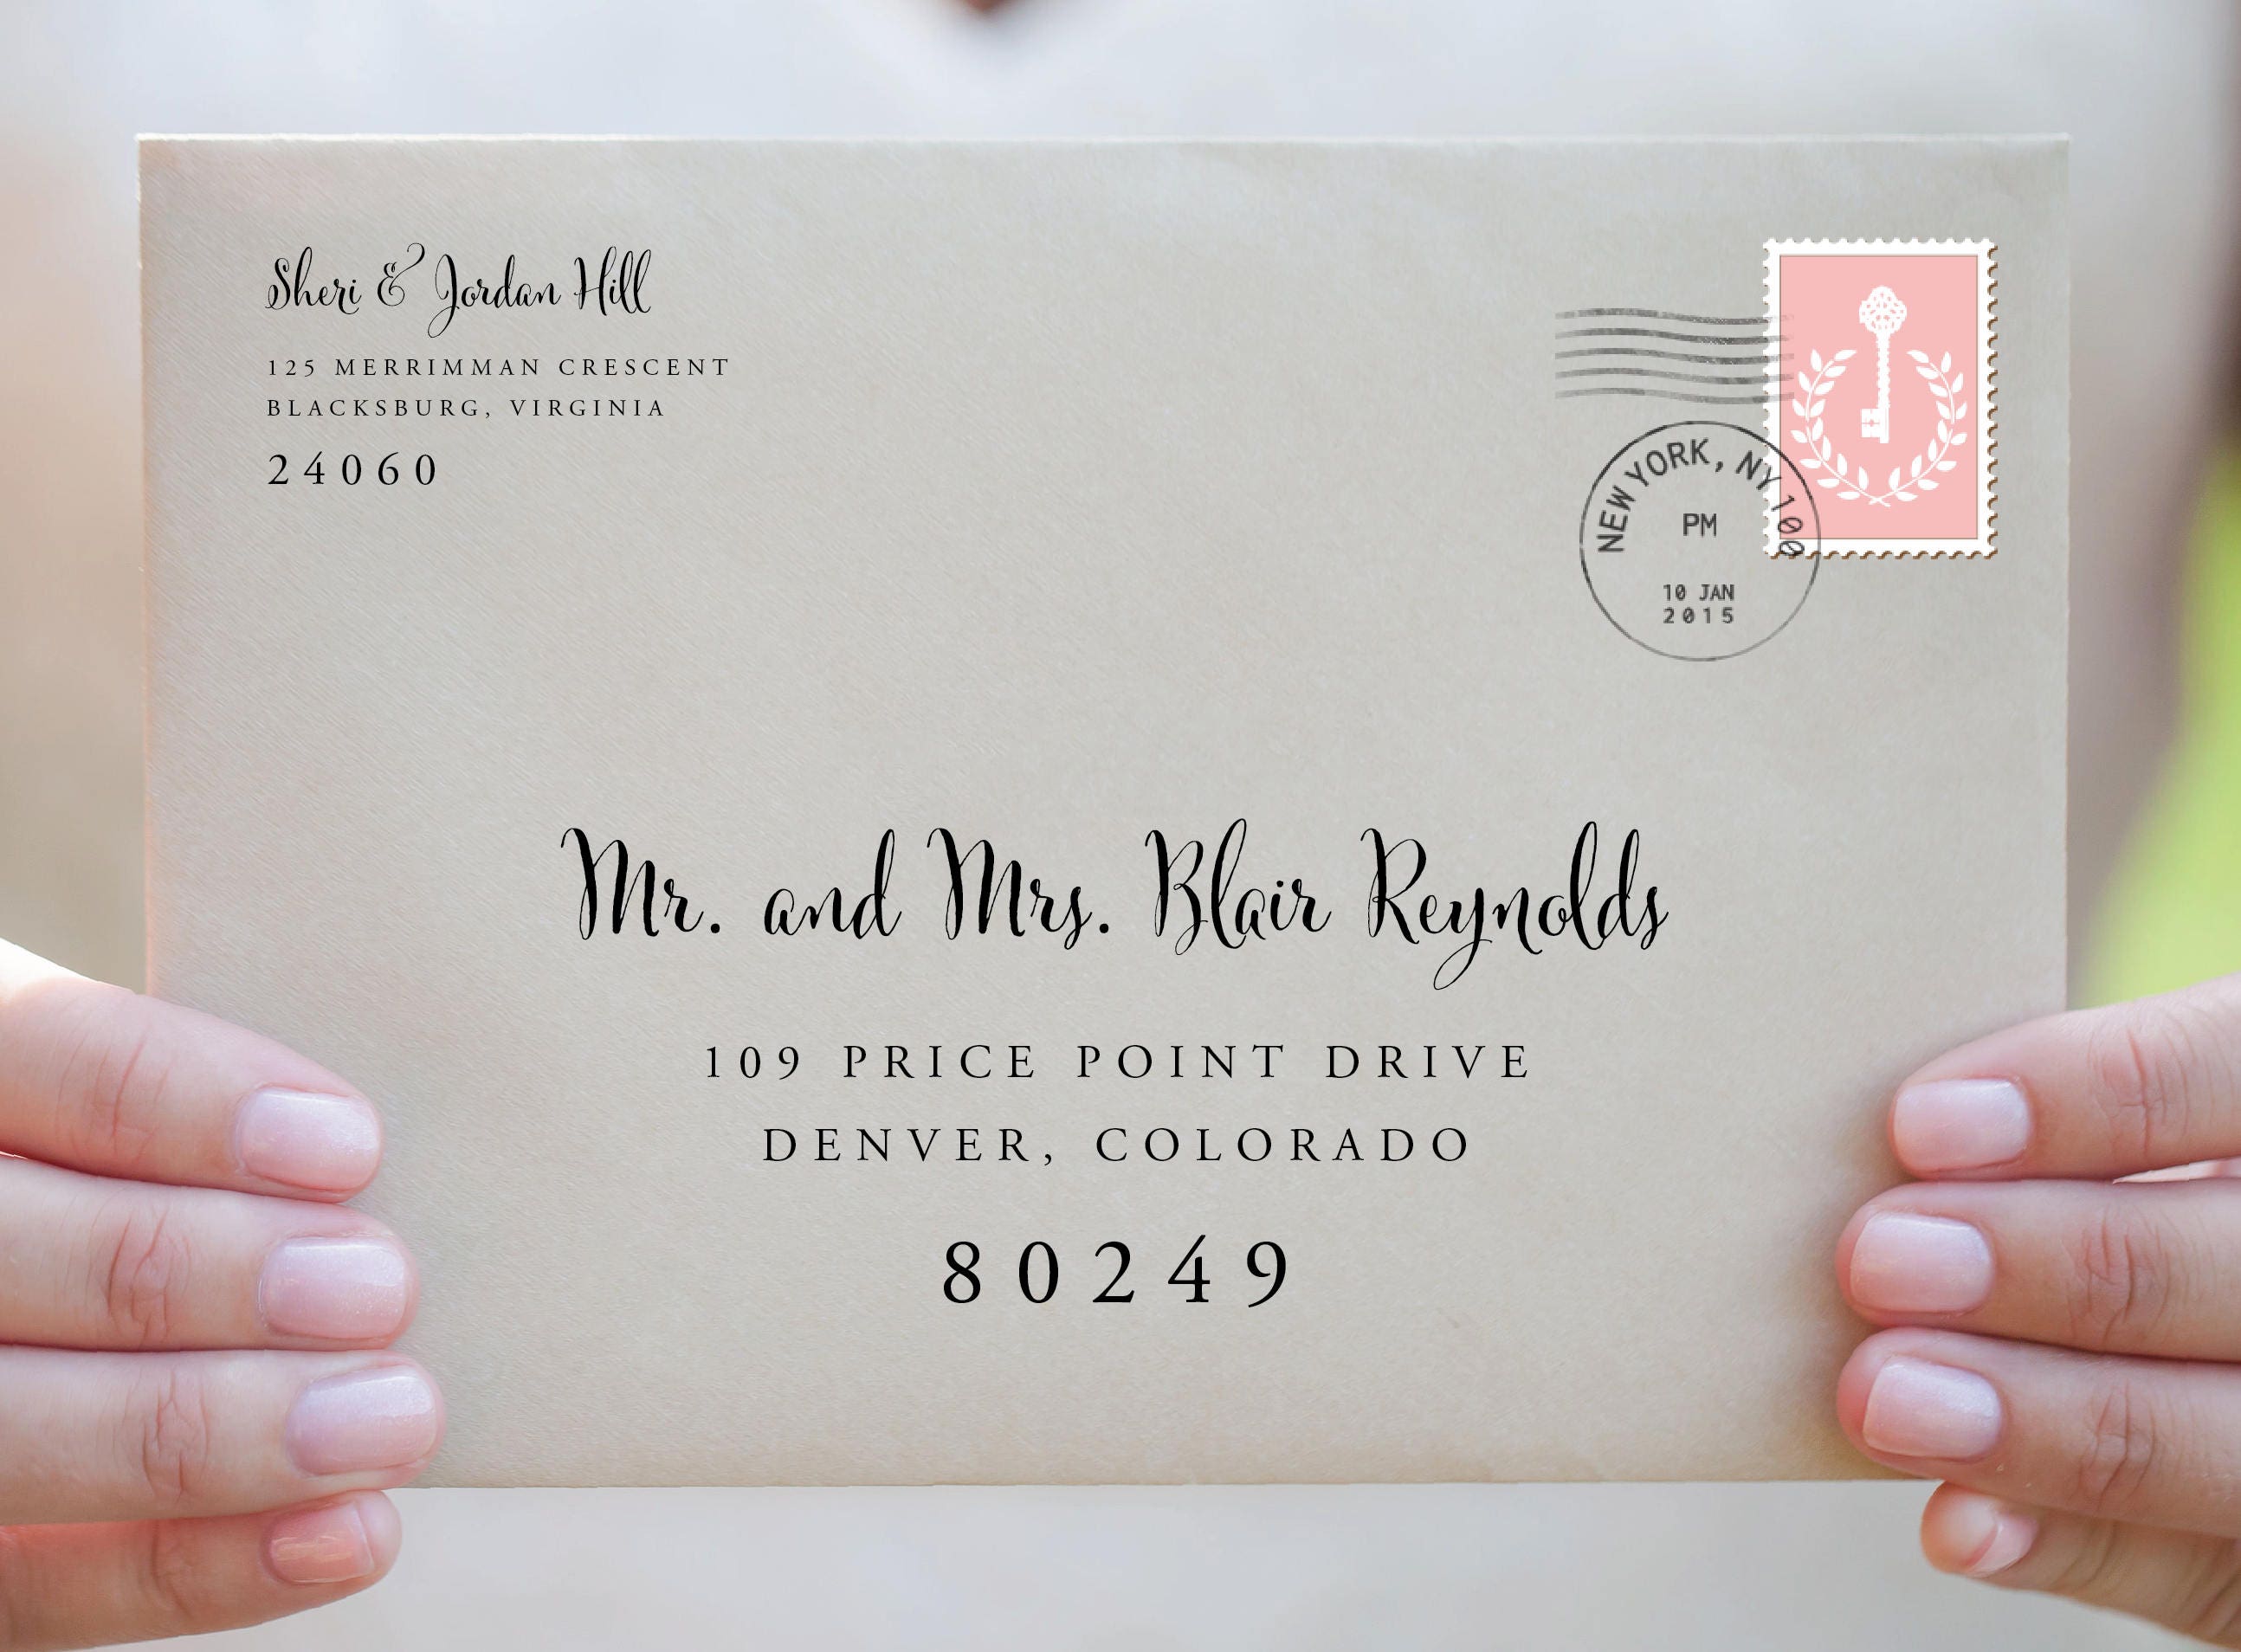 Sheri & Jordan Hill
125 MERRIMMAN CRESCENT
BLACKSBURG, VIRGINIA
24060
NEW YORK, NY 100
PM
10 JAN
2015
Mr. and Mrs. Blair Reynolds
109 PRICE POINT DRIVE
DENVER, COLORADO
80249